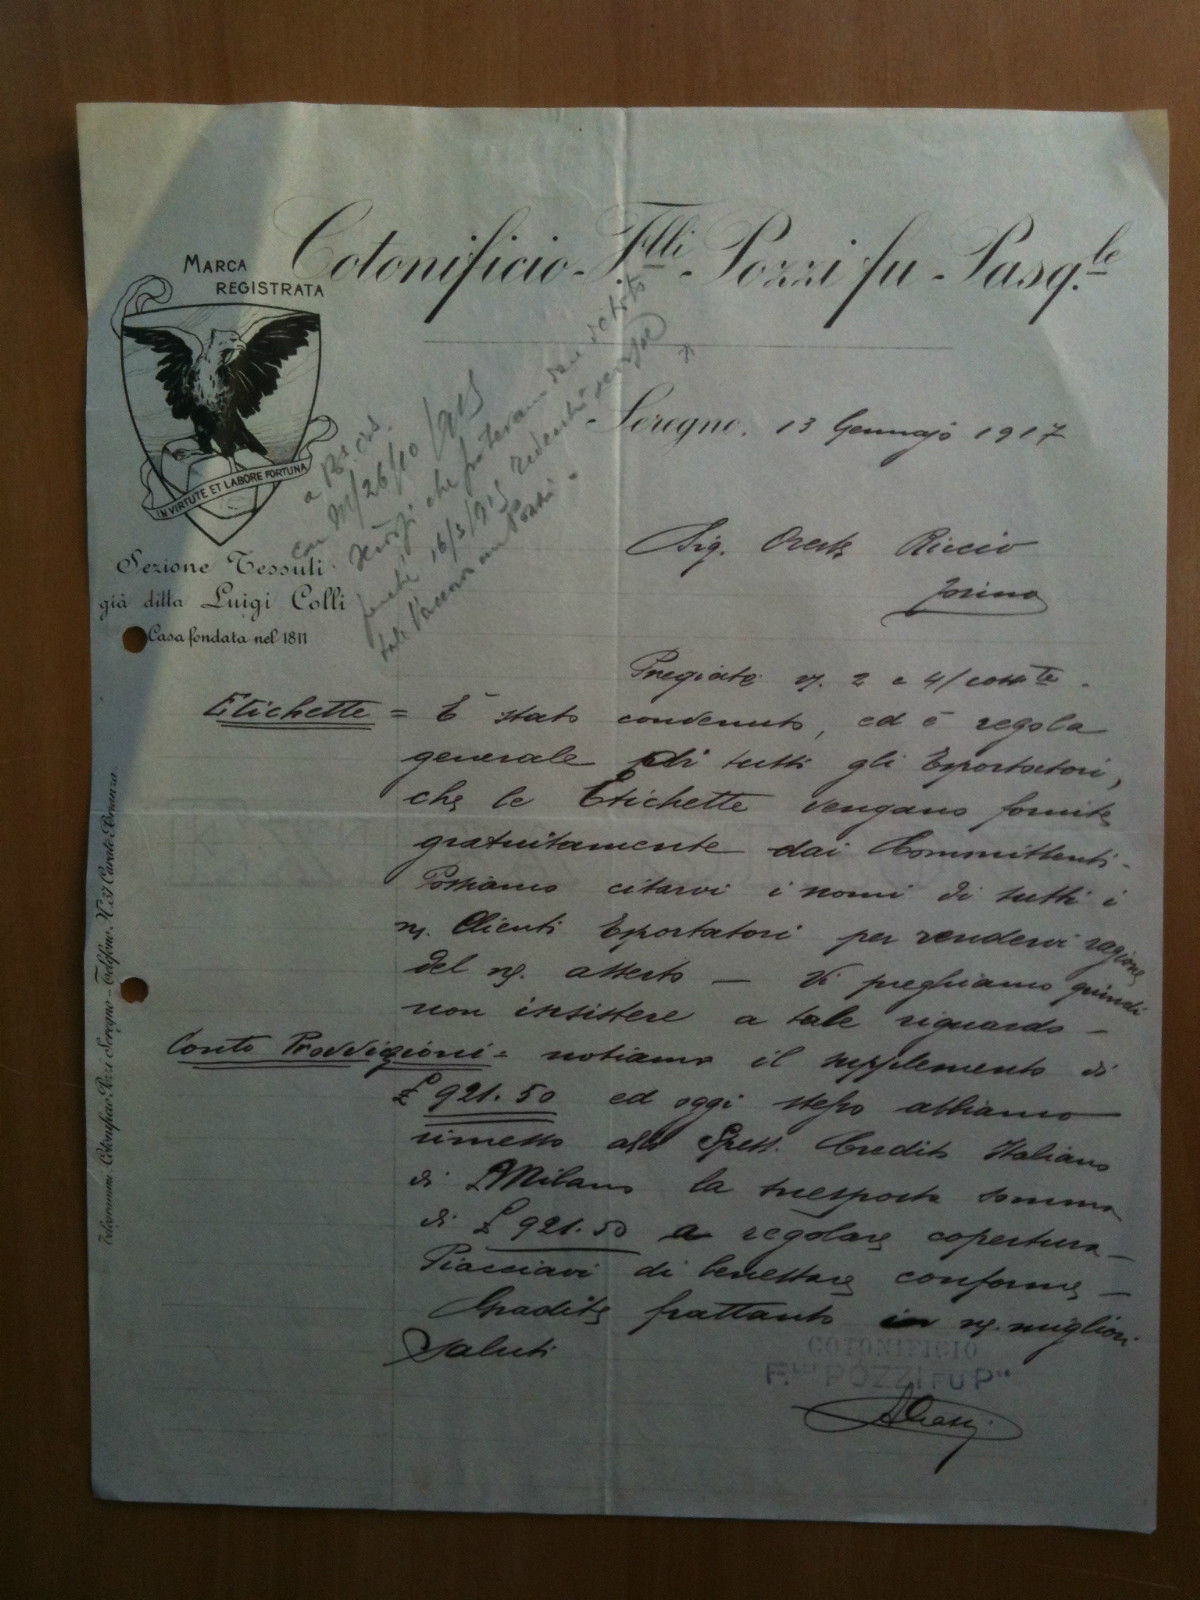 Cotonificio F.lli Pozzi fu Pasq.le
MARCA
REGISTRATA
IN VIRTUTE ET LABORE FORTUNA
Sezione Tessuti
già ditta Luigi Colli
Casa fondata nel 1811
Telegrammi: Cotonificio Pozzi Seregno - Telefono N. 37 Carate Brianza
26/10/915
che
16/3/915
Seregno, 13 Gennajo 1917
Sig. Oreste Riccio
Torino
Pregiate n. 2 e 4/corr.te.
Etichette = È stato convenuto, ed è regola
generale di tutti gli Esportatori,
che le Etichette vengano fornite
gratuitamente dai Committenti.
Possiamo citarvi i nomi di tutti i
ns. Clienti Esportatori per rendervi ragione
del ns. asserto — Vi preghiamo quindi
non insistere a tale riguardo —
Conto Provvigioni = notiamo il supplemento di
£ 921.50 ed oggi stesso abbiamo
rimesso alla Spett. Credito Italiano
di Milano la suesposta somma
di £ 921.50 a regolare copertura —
Piacciavi di benestare conforme —
Gradite frattanto in ns. migliori
Saluti
COTONIFICIO
F.lli POZZI FU P.le